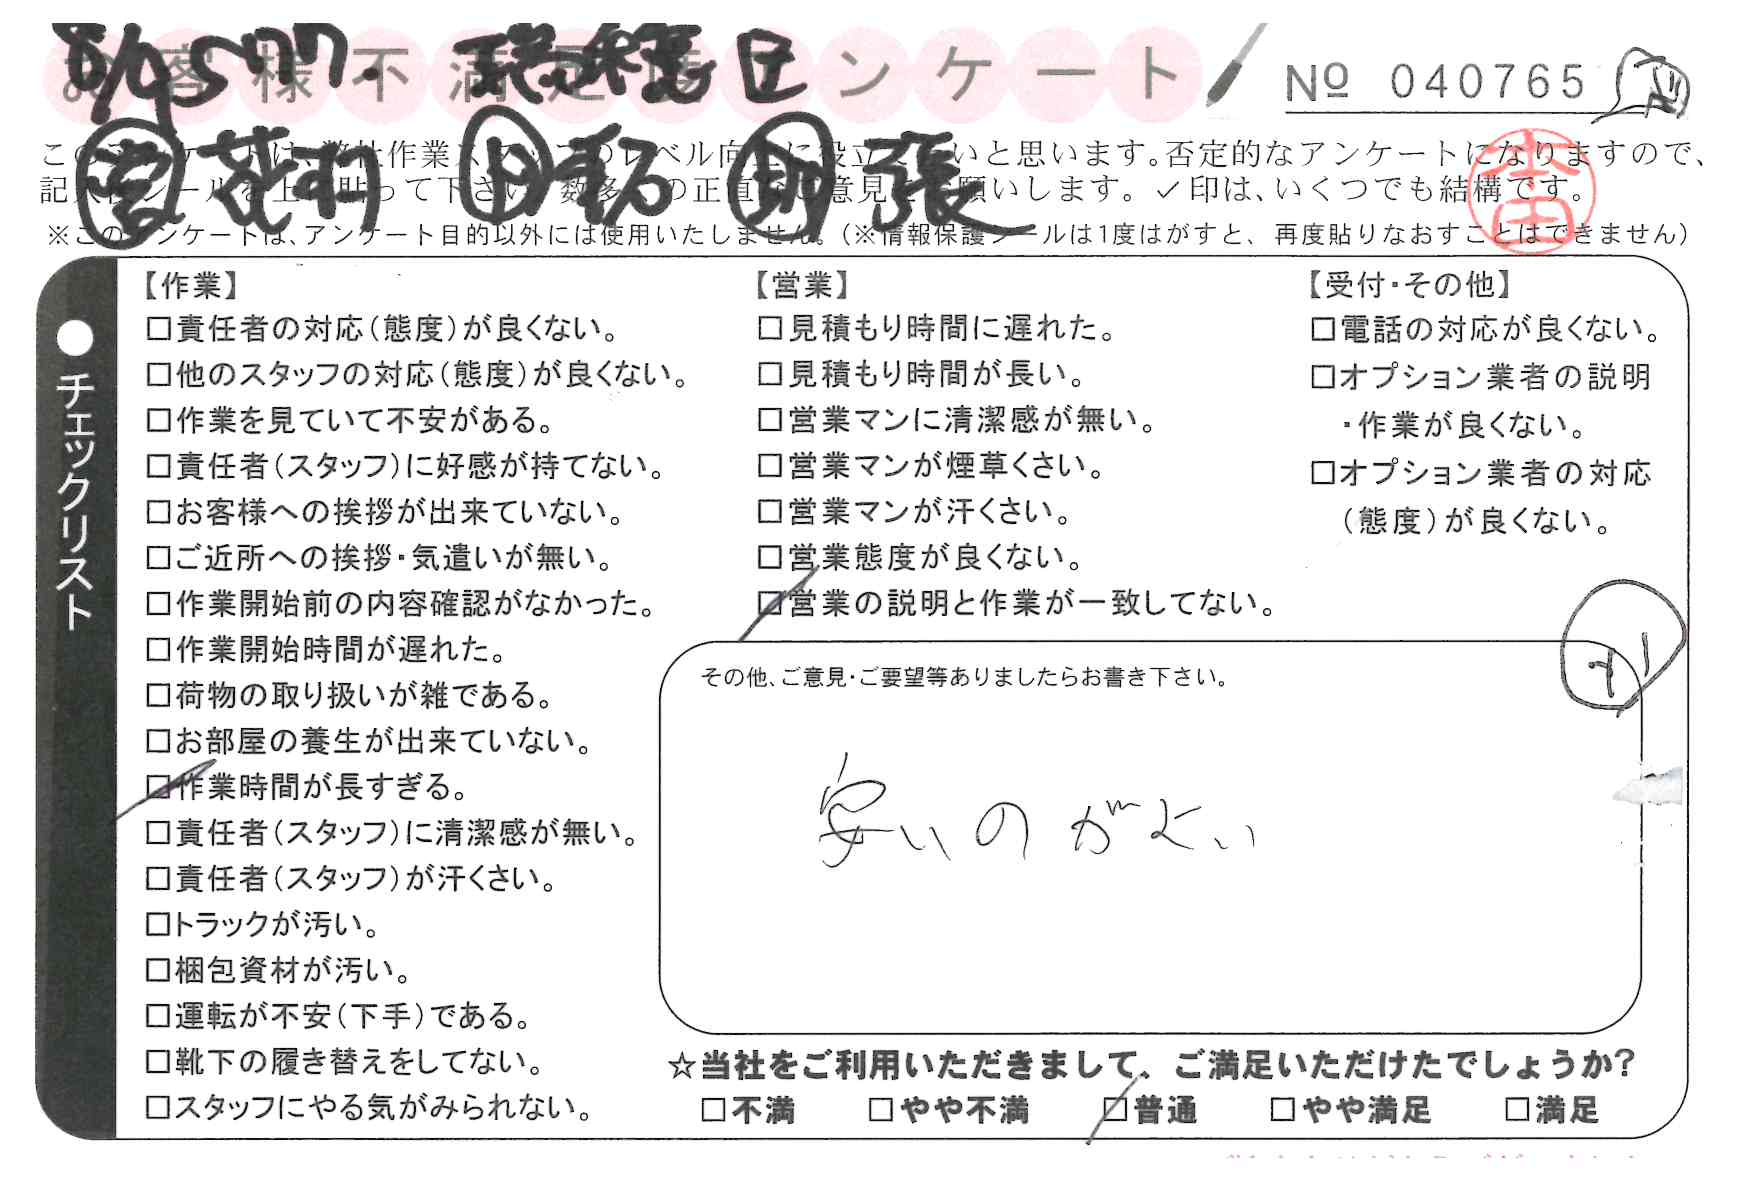 お客様不満足度アンケート
№ 040765
このアンケートは、弊社作業スタッフのレベル向上に役立てたいと思います。否定的なアンケートになりますので、
記入後シールを上に貼って下さい。数多くの正直なご意見をお願いします。✓印は、いくつでも結構です。
※このアンケートは、アンケート目的以外には使用いたしません。(※情報保護シールは1度はがすと、再度貼りなおすことはできません)
本田
●チェックリスト
【作業】
□責任者の対応(態度)が良くない。
□他のスタッフの対応(態度)が良くない。
□作業を見ていて不安がある。
□責任者(スタッフ)に好感が持てない。
□お客様への挨拶が出来ていない。
□ご近所への挨拶・気遣いが無い。
□作業開始前の内容確認がなかった。
□作業開始時間が遅れた。
□荷物の取り扱いが雑である。
□お部屋の養生が出来ていない。
☑作業時間が長すぎる。
□責任者(スタッフ)に清潔感が無い。
□責任者(スタッフ)が汗くさい。
□トラックが汚い。
□梱包資材が汚い。
□運転が不安(下手)である。
□靴下の履き替えをしてない。
□スタッフにやる気がみられない。
【営業】
□見積もり時間に遅れた。
□見積もり時間が長い。
□営業マンに清潔感が無い。
□営業マンが煙草くさい。
□営業マンが汗くさい。
□営業態度が良くない。
☑営業の説明と作業が一致してない。
【受付・その他】
□電話の対応が良くない。
□オプション業者の説明
・作業が良くない。
□オプション業者の対応
(態度)が良くない。
その他、ご意見・ご要望等ありましたらお書き下さい。
安いのがよい
☆当社をご利用いただきまして、ご満足いただけたでしょうか?
□不満 □やや不満 ☑普通 □やや満足 □満足